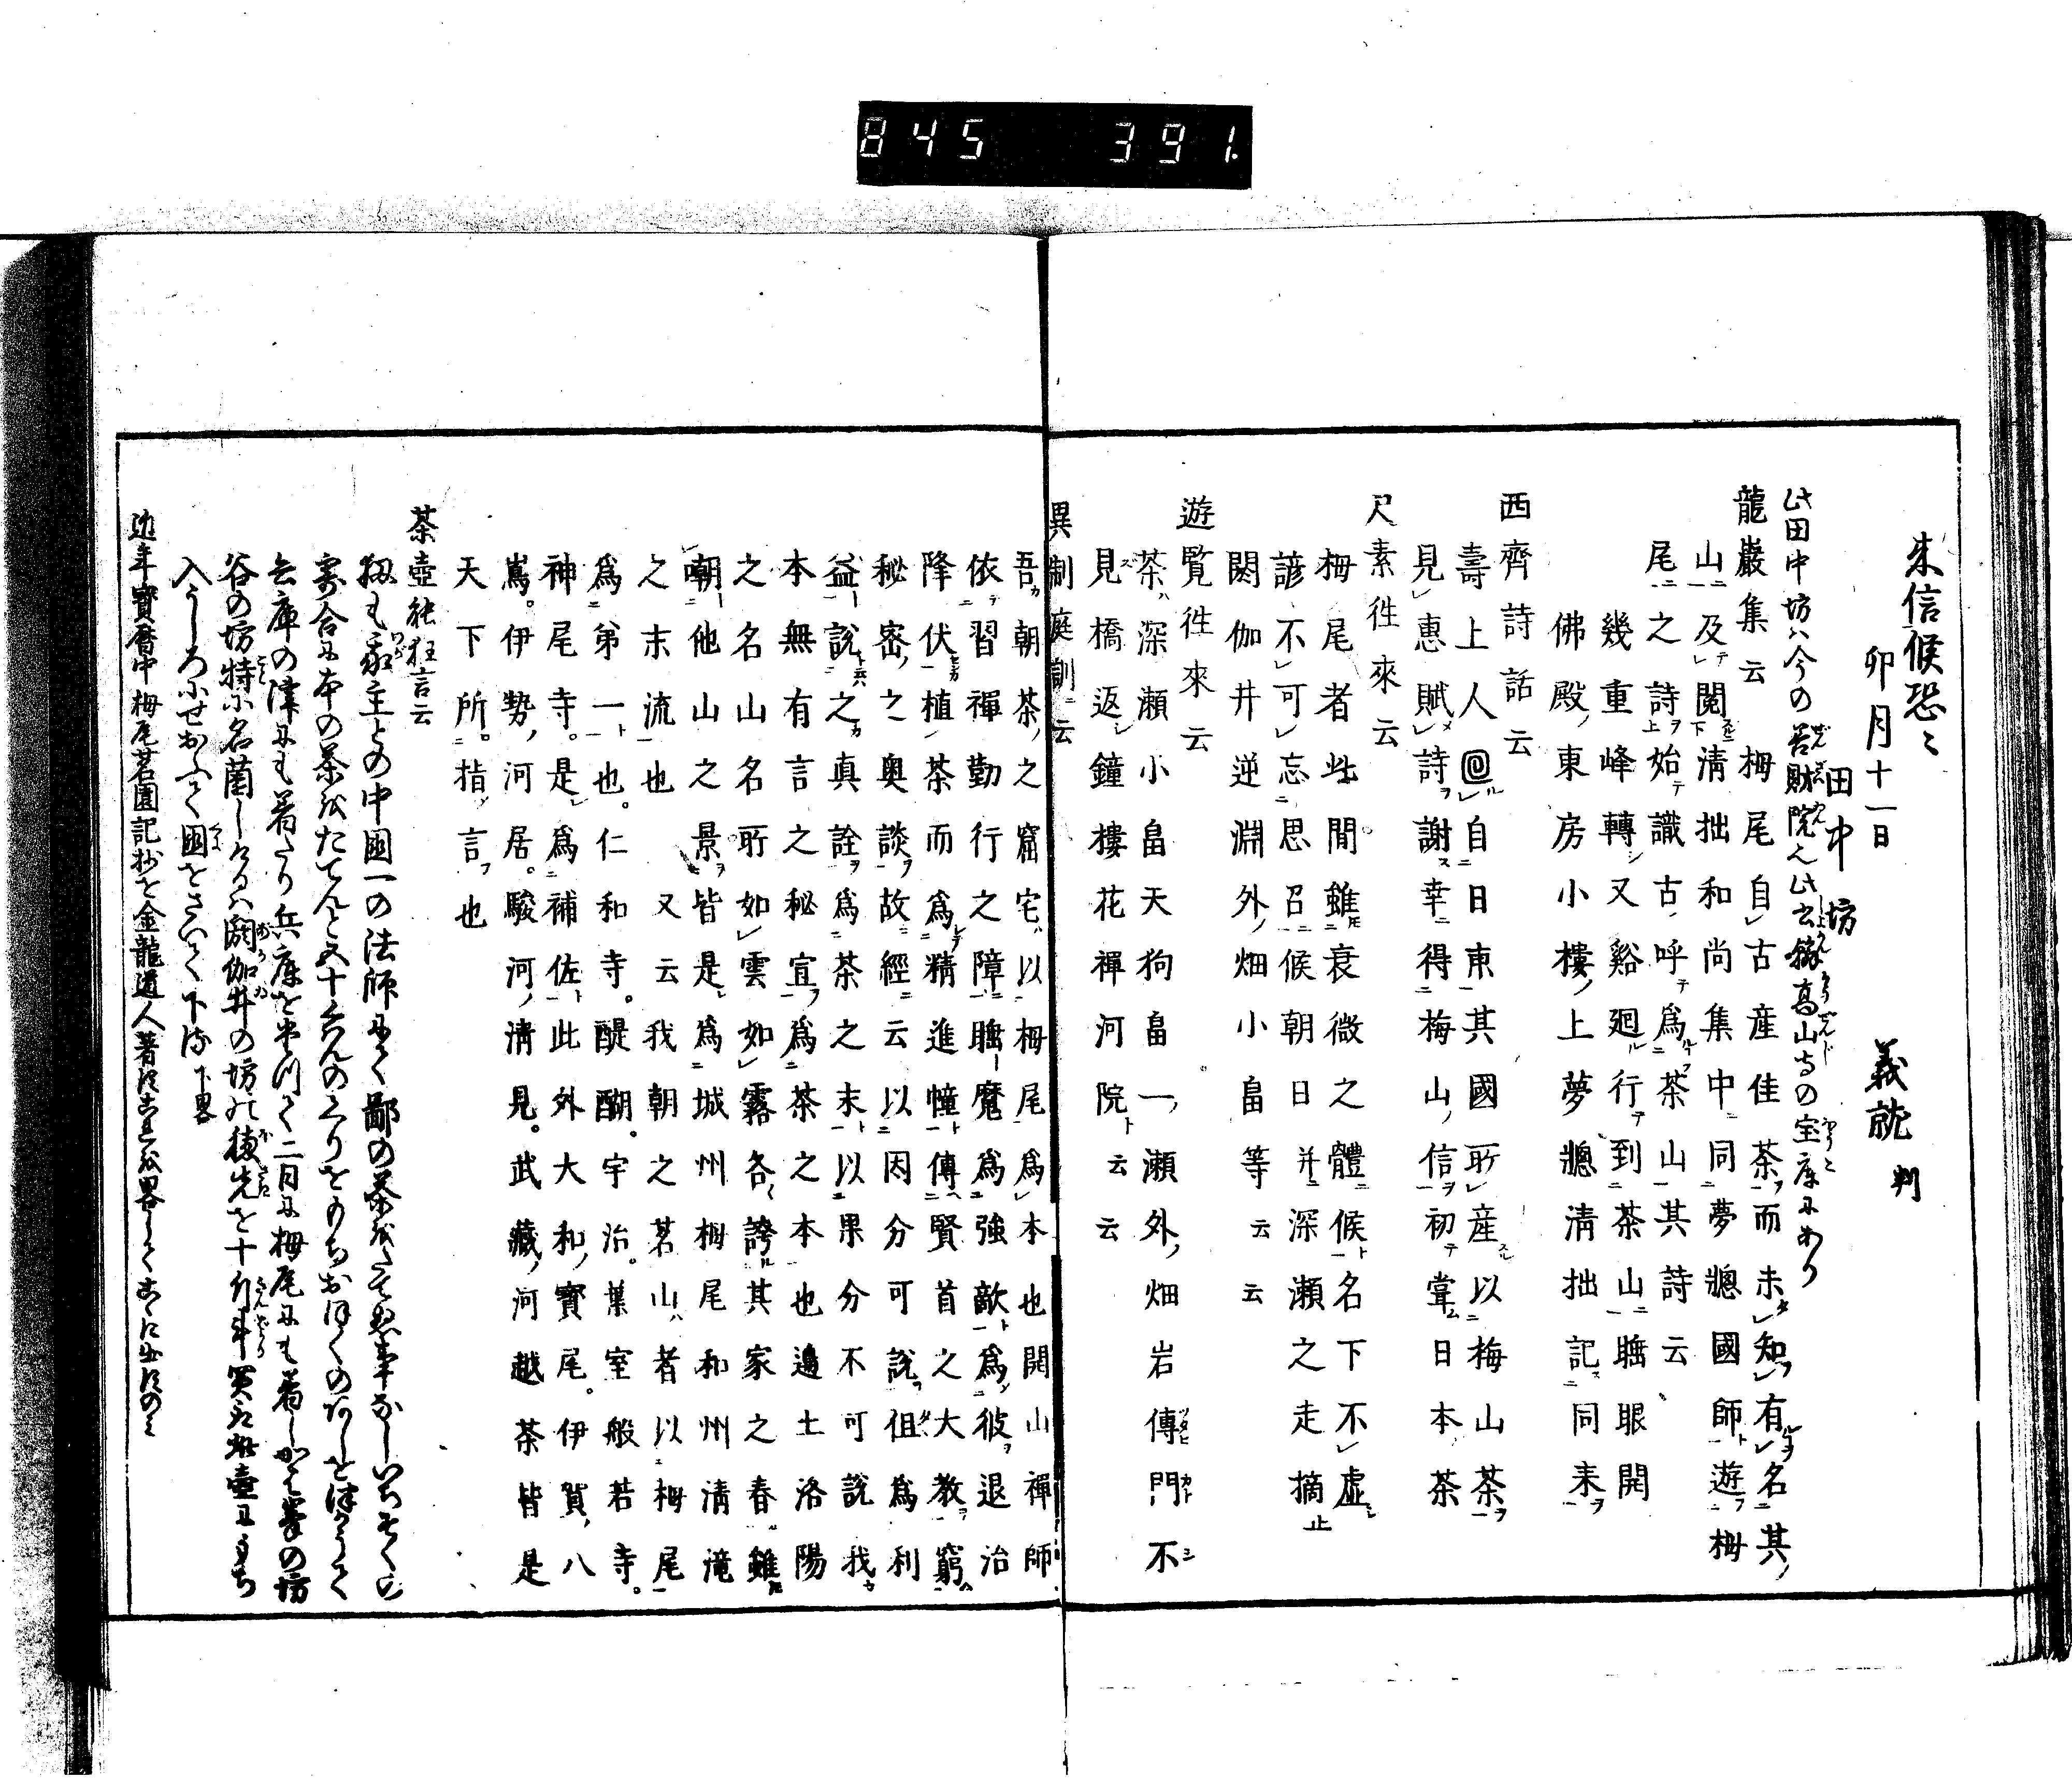 845 391.
来信候恐〻
卯月十一日
田中坊 義𛂦 判
此田中坊ハ今の善財院也此云録高山寺の宝庫にあり
龍巖集云 栂尾自古産佳茶而未知有名其
山及閲清拙和尚集中同夢窓國師遊栂
尾之詩始識古呼為茶山其詩云
幾重峰轉又谿廻行到茶山聸眼開
佛殿東房小樓上夢窓清拙記同来
西齊詩話云
壽上人回自日東其國所産以梅山茶
見惠賦詩謝幸得梅山信初甞日本茶
尺素徃來云
栂尾者此間雖衰微之體候名下不虚
諺不可忘思召候朝日并深瀬之走摘
閼伽井逆淵外畑小畠等云云
遊覧徃來云
茶深瀬小畠天狗畠一瀬外畑岩傳門不
見橋返鐘樓花禪河院云云
異制庭訓云
吾朝茶之窟宅以栂尾為本也開山禪師
依習禪勤行之障聸魔為強敵為彼退治
降伏植茶而為精進幢傳賢首之大教窮
秘密之奥談故經云以因分可說但為利
益說之真詮為茶之末以果分不可說我
本無有言之秘宜為茶之本也邉土洛陽
之名山名所如雲如霧各誇其家之春雖
朝他山之景皆是為城州栂尾和州清滝
之末流也 又云我朝之茗山者以栂尾
為第一也。仁和寺。醍醐。宇治。葉室般若寺。
神尾寺。是為補佐此外大和寳尾。伊賀八
嶌。伊勢河居。駿河清見。武蔵河越茶皆是
天下所。指言也
茶壺能狂言云
抑も我主との中國一の法師にて鄙の茶を立ぬ事なしいちぞくの
寄合に本の茶をたてんと五十くわんのくりをのちおほくのあしをつかうて
兵庫の津にも着たり兵庫を半つて二日に栂尾にも着しかば峯の坊
谷の坊特に名蘭しけるハ閼伽井の坊の穂先を十斤斗買取壺にうち
入うしろにせおふて國をさいて下る下畧
近年寳暦中栂尾茗園記抄を金龍道人著はすこれを畧してこゝに出すのミ